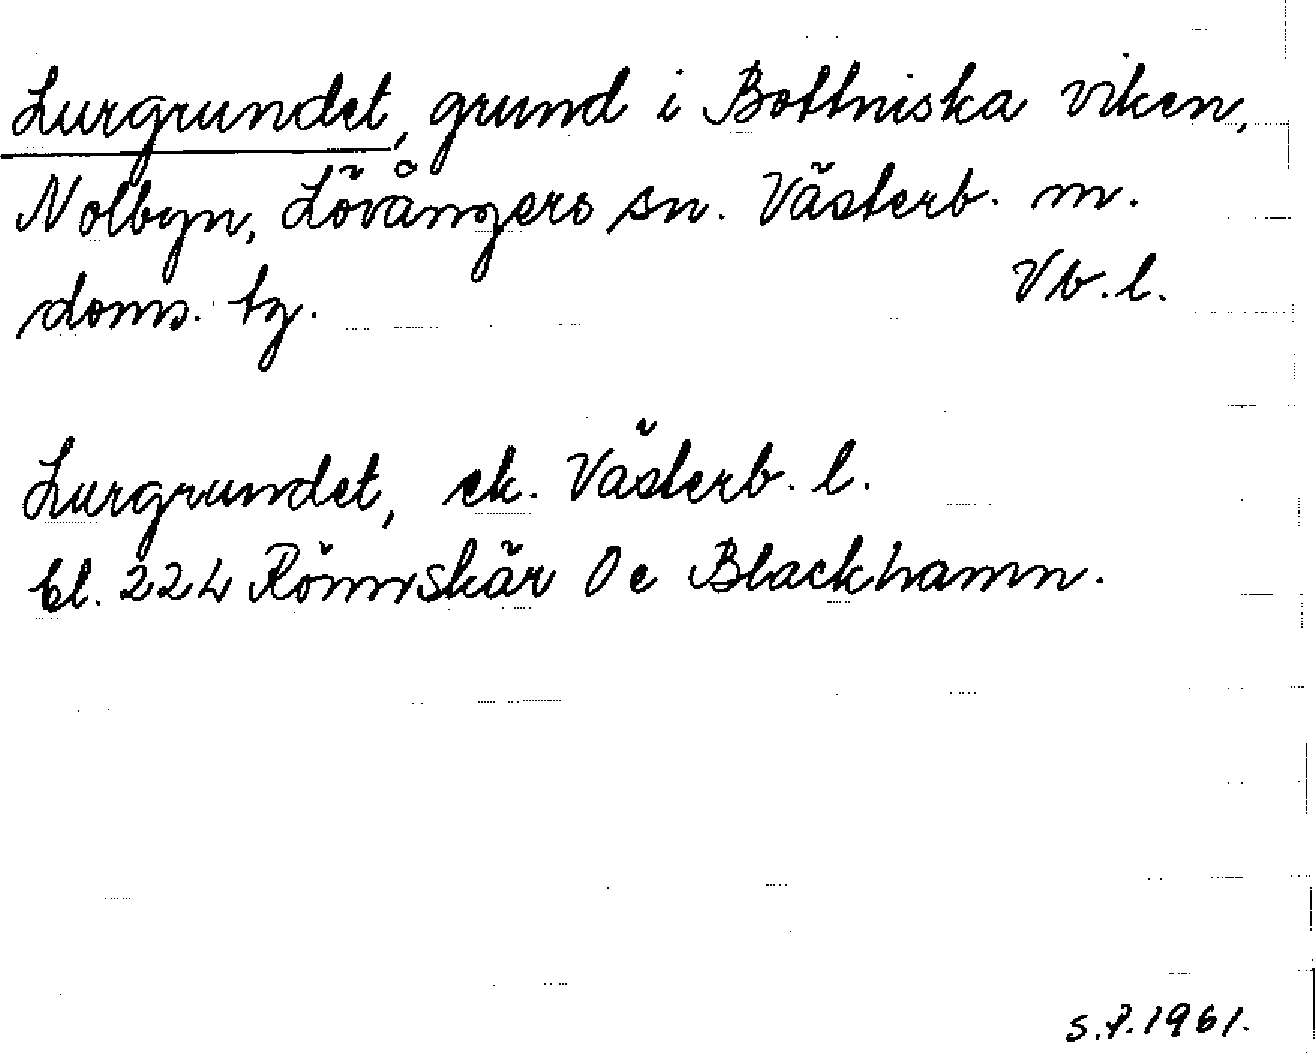 Lurgrundet, grund i Bottniska viken,
Nolbyn, Lövångers sn. Västerb. m.
doms. tg. Vb. l.
Lurgrundet, ek. Västerb. l.
bl. 224 Rönnskär Oc Blackhamn.
S.P. 1961.